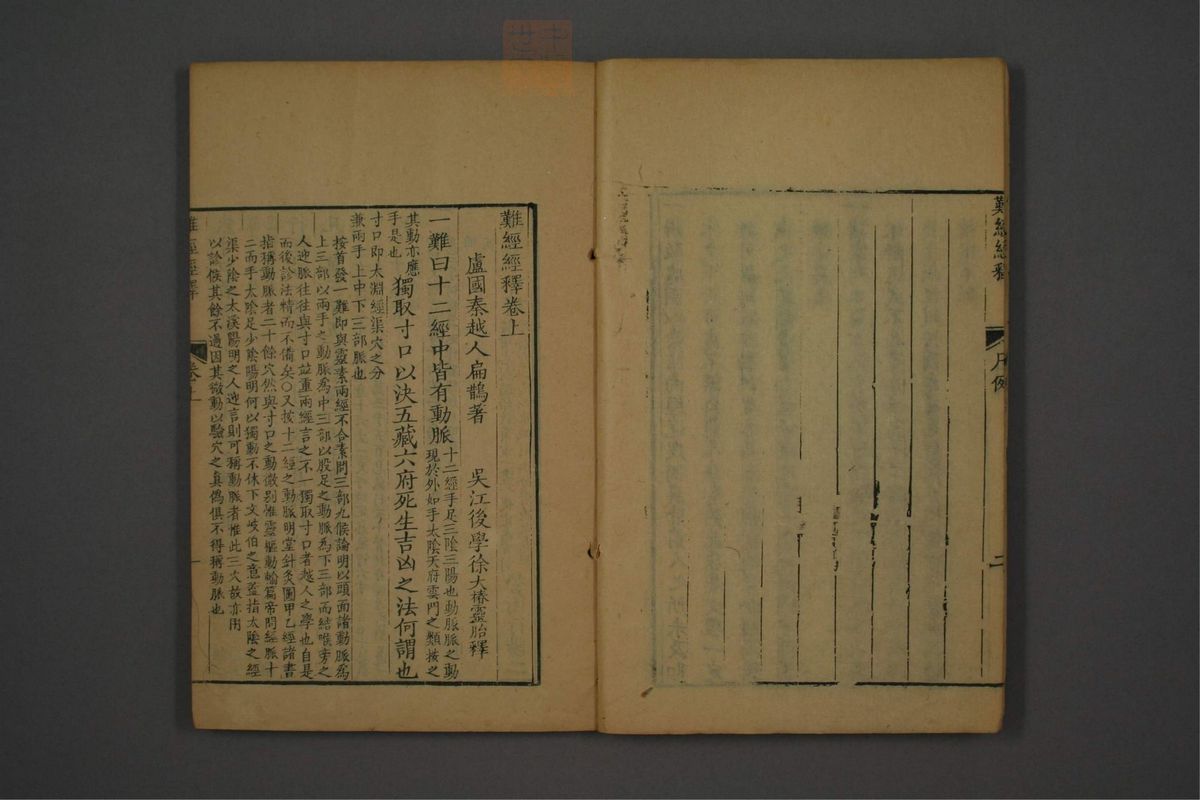 難經經釋
凡例
二
難經經釋卷上
盧國秦越人扁鵲著　吳江後學徐大椿靈胎釋
一難曰十二經中皆有動脈
十二經手足三陰三陽也動脈脈之動
現於外如手太陰天府雲門之類按之
其動亦應
手是也
獨取寸口以決五藏六府死生吉凶之法何謂也
寸口即太淵經渠穴之分
兼兩手上中下三部脈也
按首發一難即與靈素兩經不合素問三部九候論明以頭面諸動脈為
上三部以兩手之動脈為中三部以股足之動脈為下三部而結喉旁之
人迎脈往往與寸口並重兩經言之不一獨取寸口者越人之學也自是
而後診法精而不備矣○又按十二經之動脈明堂針灸圖甲乙經諸書
指稱動脈者二十餘穴然與寸口之動微別惟靈樞動輸篇帝問經脈十
二而手太陰足少陰陽明何以獨動不休下文岐伯之意蓋指太陰之經
渠少陰之太溪陽明之人迎言則可稱動脈者惟此三穴故亦用
以診候其餘不過因其微動以驗穴之真偽俱不得稱動脈也
難經經釋
卷上
一